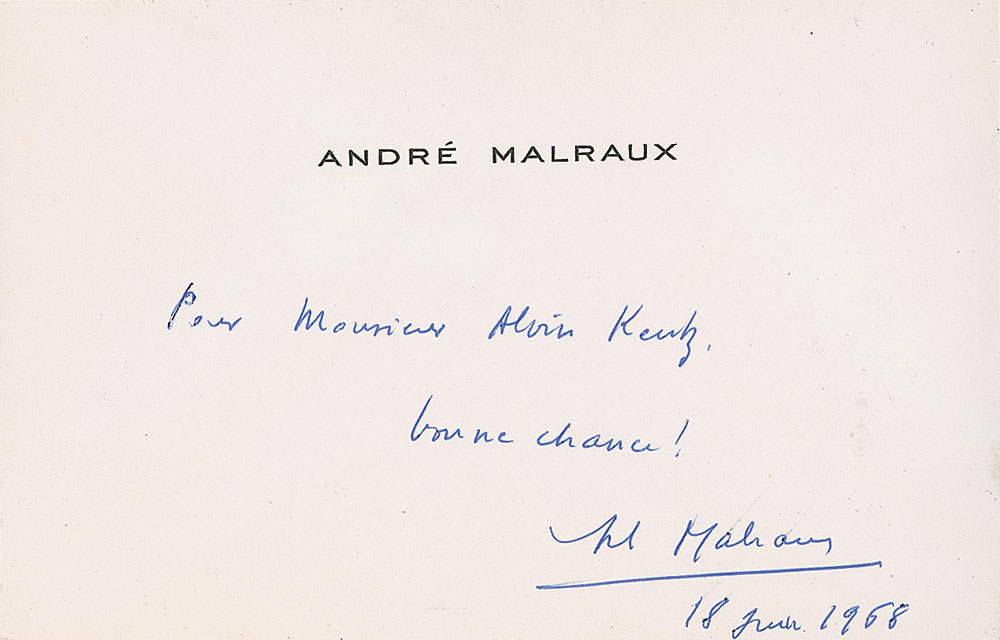 ANDRÉ MALRAUX
Pour Monsieur Alvin Kentz,
bonne chance!
Malraux
18 juin 1968